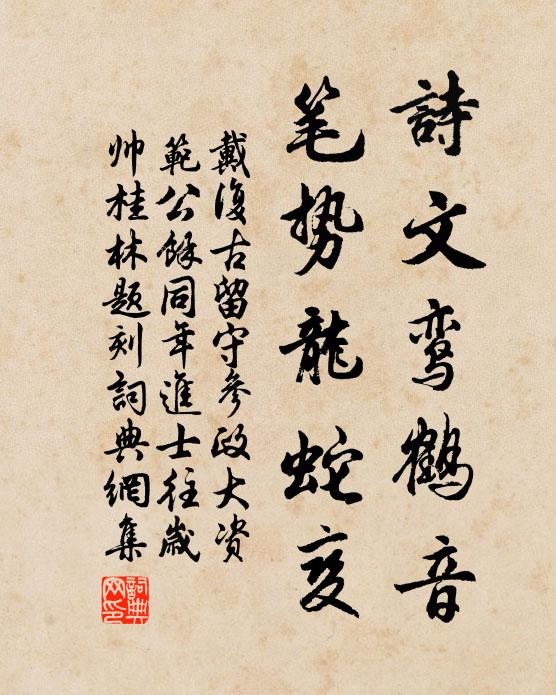 詩文鸾鶴音
笔势龍蛇变
戴復古留守參政大资
範公餘同年進士往歲
帅桂林題刻詞典網集
詞典网印